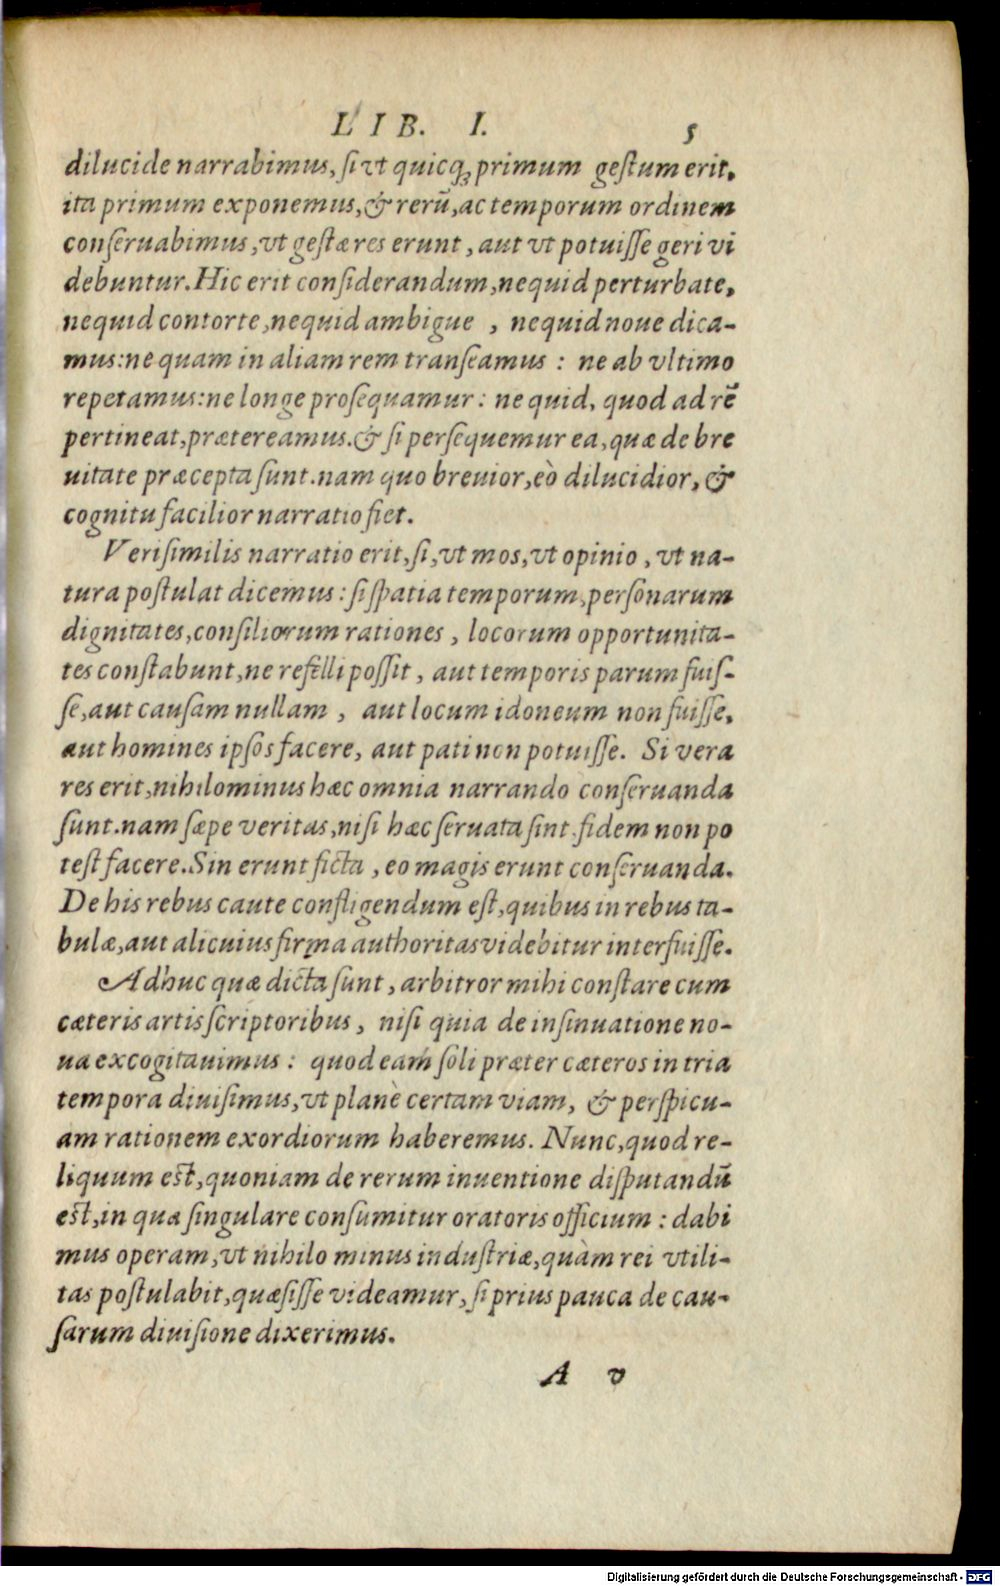 LIB. I. 5
dilucide narrabimus, si vt quicq; primum gestum erit,
ita primum exponemus, & rerū, ac temporum ordinem
conseruabimus, vt gestæ res erunt, aut vt potuisse geri vi
debuntur. Hic erit considerandum, nequid perturbate,
nequid contorte, nequid ambigue, nequid noue dica-
mus: ne quam in aliam rem transeamus: ne ab vltimo
repetamus: ne longe prosequamur: ne quid, quod ad rē
pertineat, prætereamus. & si persequemur ea, quæ de bre
uitate præcepta sunt. nam quo breuior, eò dilucidior, &
cognitu facilior narratio fiet.
Verisimilis narratio erit, si, vt mos, vt opinio, vt na-
tura postulat dicemus: si spatia temporum, personarum
dignitates, consiliorum rationes, locorum opportunita-
tes constabunt, ne refelli possit, aut temporis parum fuis-
se, aut causam nullam, aut locum idoneum non fuisse,
aut homines ipsos facere, aut pati non potuisse. Si vera
res erit, nihilominus hæc omnia narrando conseruanda
sunt. nam sæpe veritas, nisi hæc seruata sint. fidem non po
test facere. Sin erunt ficta, eo magis erunt conseruanda.
De his rebus caute confligendum est, quibus in rebus ta-
bulæ, aut alicuius firma authoritas videbitur interfuisse.
Adhuc quæ dicta sunt, arbitror mihi constare cum
cæteris artis scriptoribus, nisi quia de insinuatione no-
ua excogitauimus: quod eam soli præter cæteros in tria
tempora diuisimus, vt planè certam viam, & perspicu-
am rationem exordiorum haberemus. Nunc, quod re-
liquum est, quoniam de rerum inuentione disputandū
est, in qua singulare consumitur oratoris officium: dabi
mus operam, vt nihilo minus industriæ, quàm rei vtili-
tas postulabit, quæsisse videamur, si prius pauca de cau-
sarum diuisione dixerimus.
A v
Digitalisierung gefördert durch die Deutsche Forschungsgemeinschaft - DFG